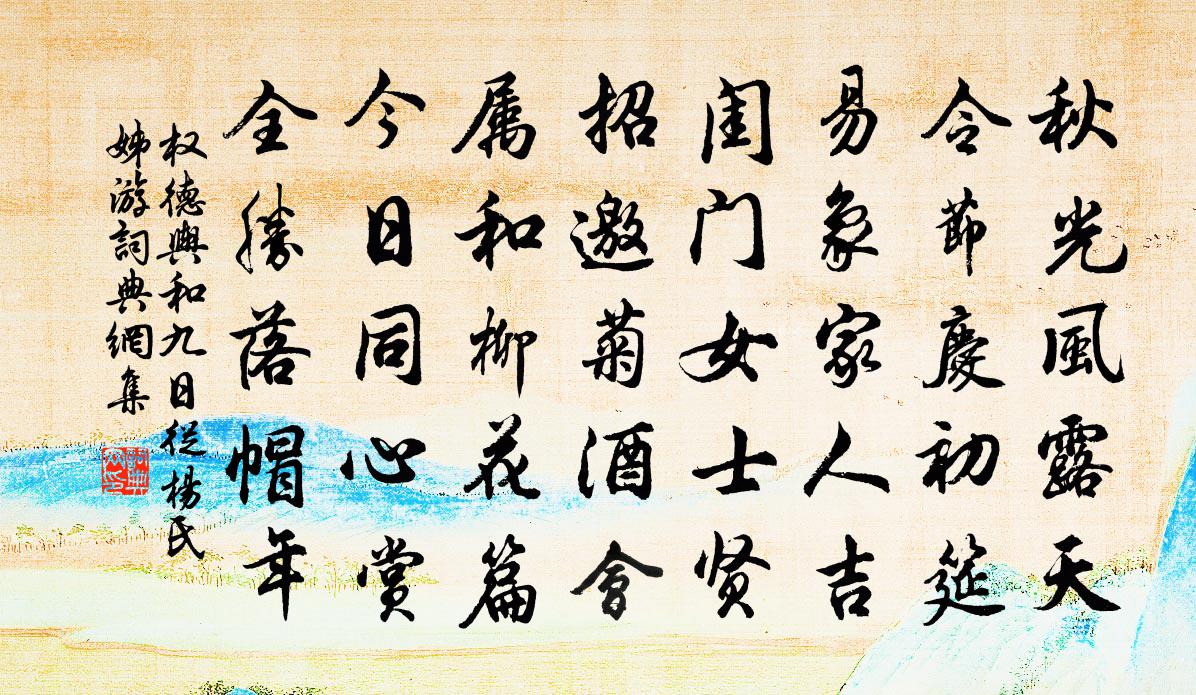 秋光風露天
令節慶初筵
易象家人吉
闺门女士贤
招邀菊酒會
属和柳花篇
今日同心賞
全勝落帽年
权德與和九日從楊氏
姊游詞典網集